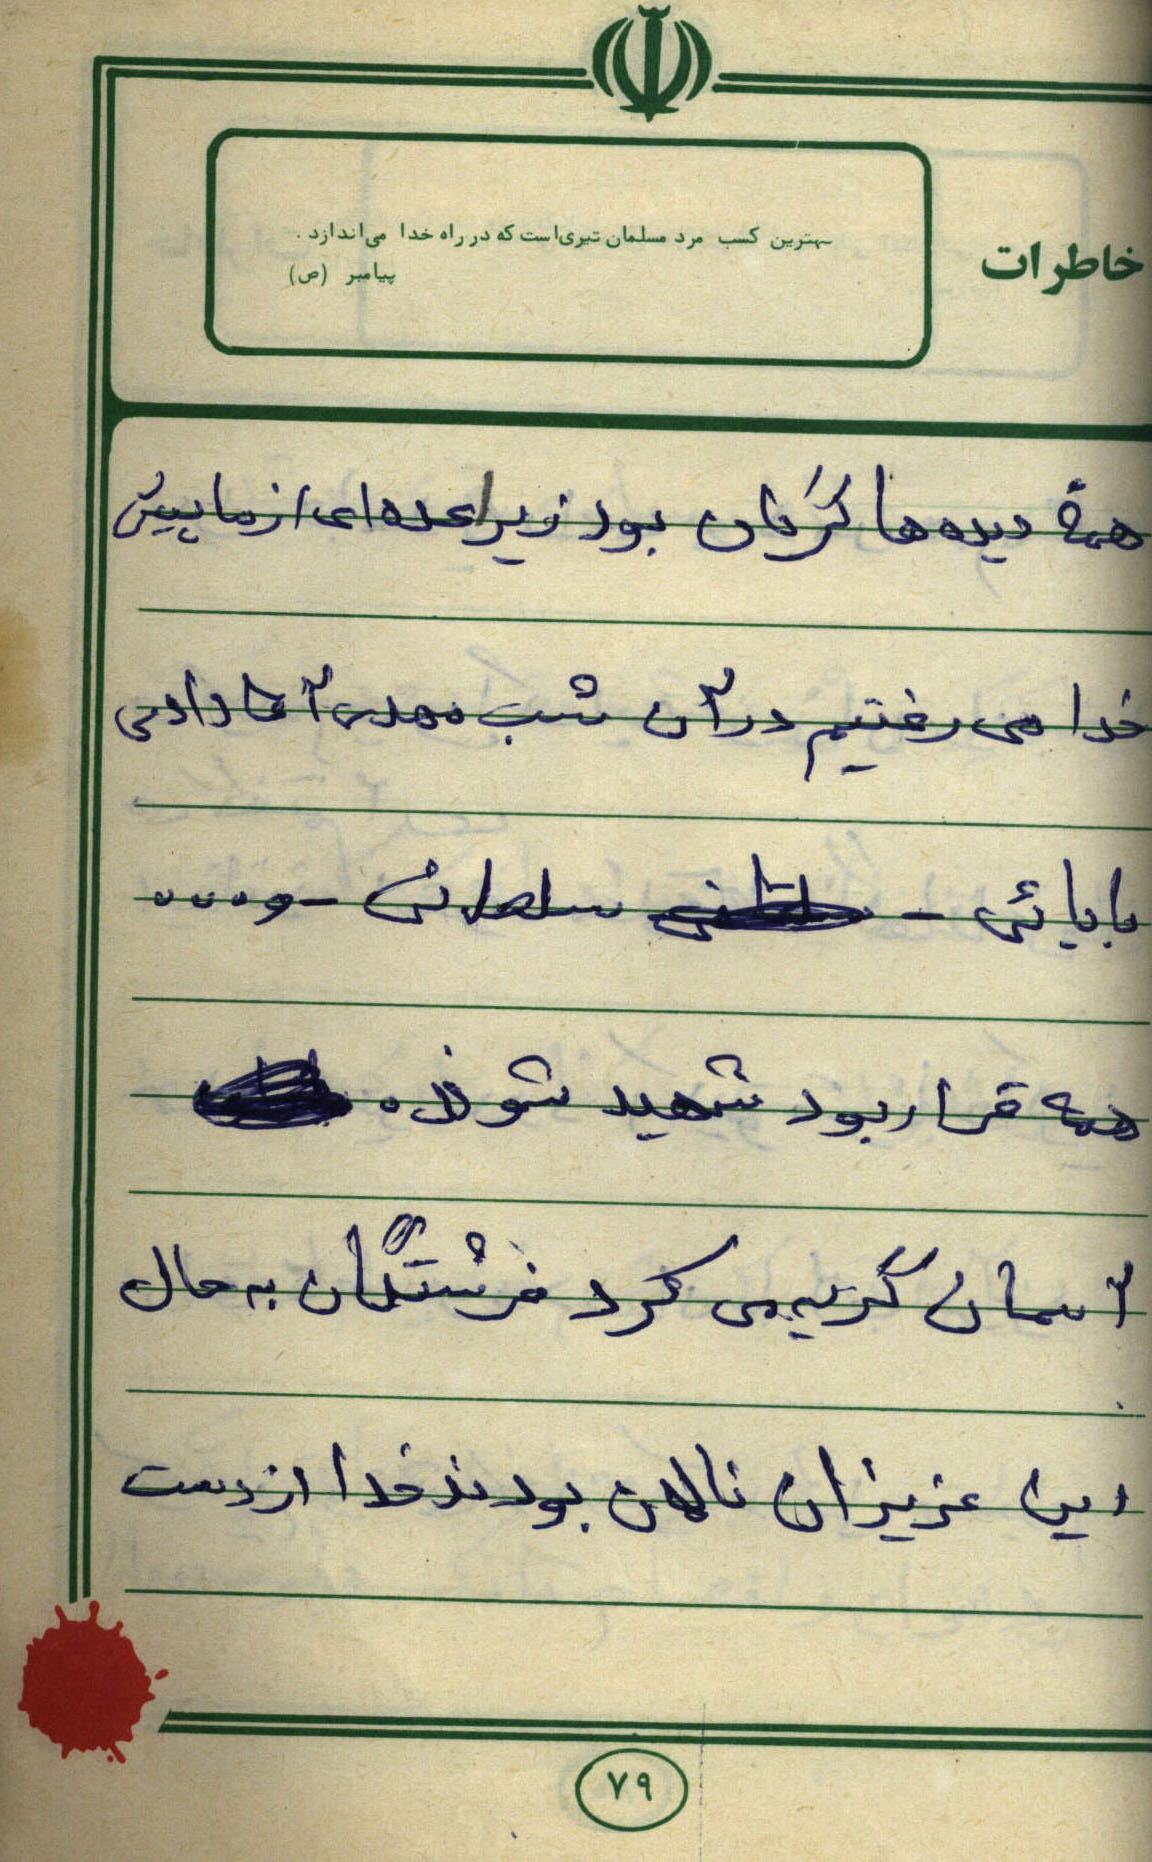 خاطرات
بهترین کسب مرد مسلمان تیری است که در راه خدا می‌اندازد .
پیامبر (ص)
همهٔ دیده ها گریان بود زیرا عده ای از ما پیش
خدا می رفتیم در آن شب مهدی آقا دادی
بابائی - سلمانی - و ....
همه قرار بود شهید شوند.
آسمان گریه می کرد فرشتگان به حال
این عزیزان نالان بودند خدا از دست
۷۹